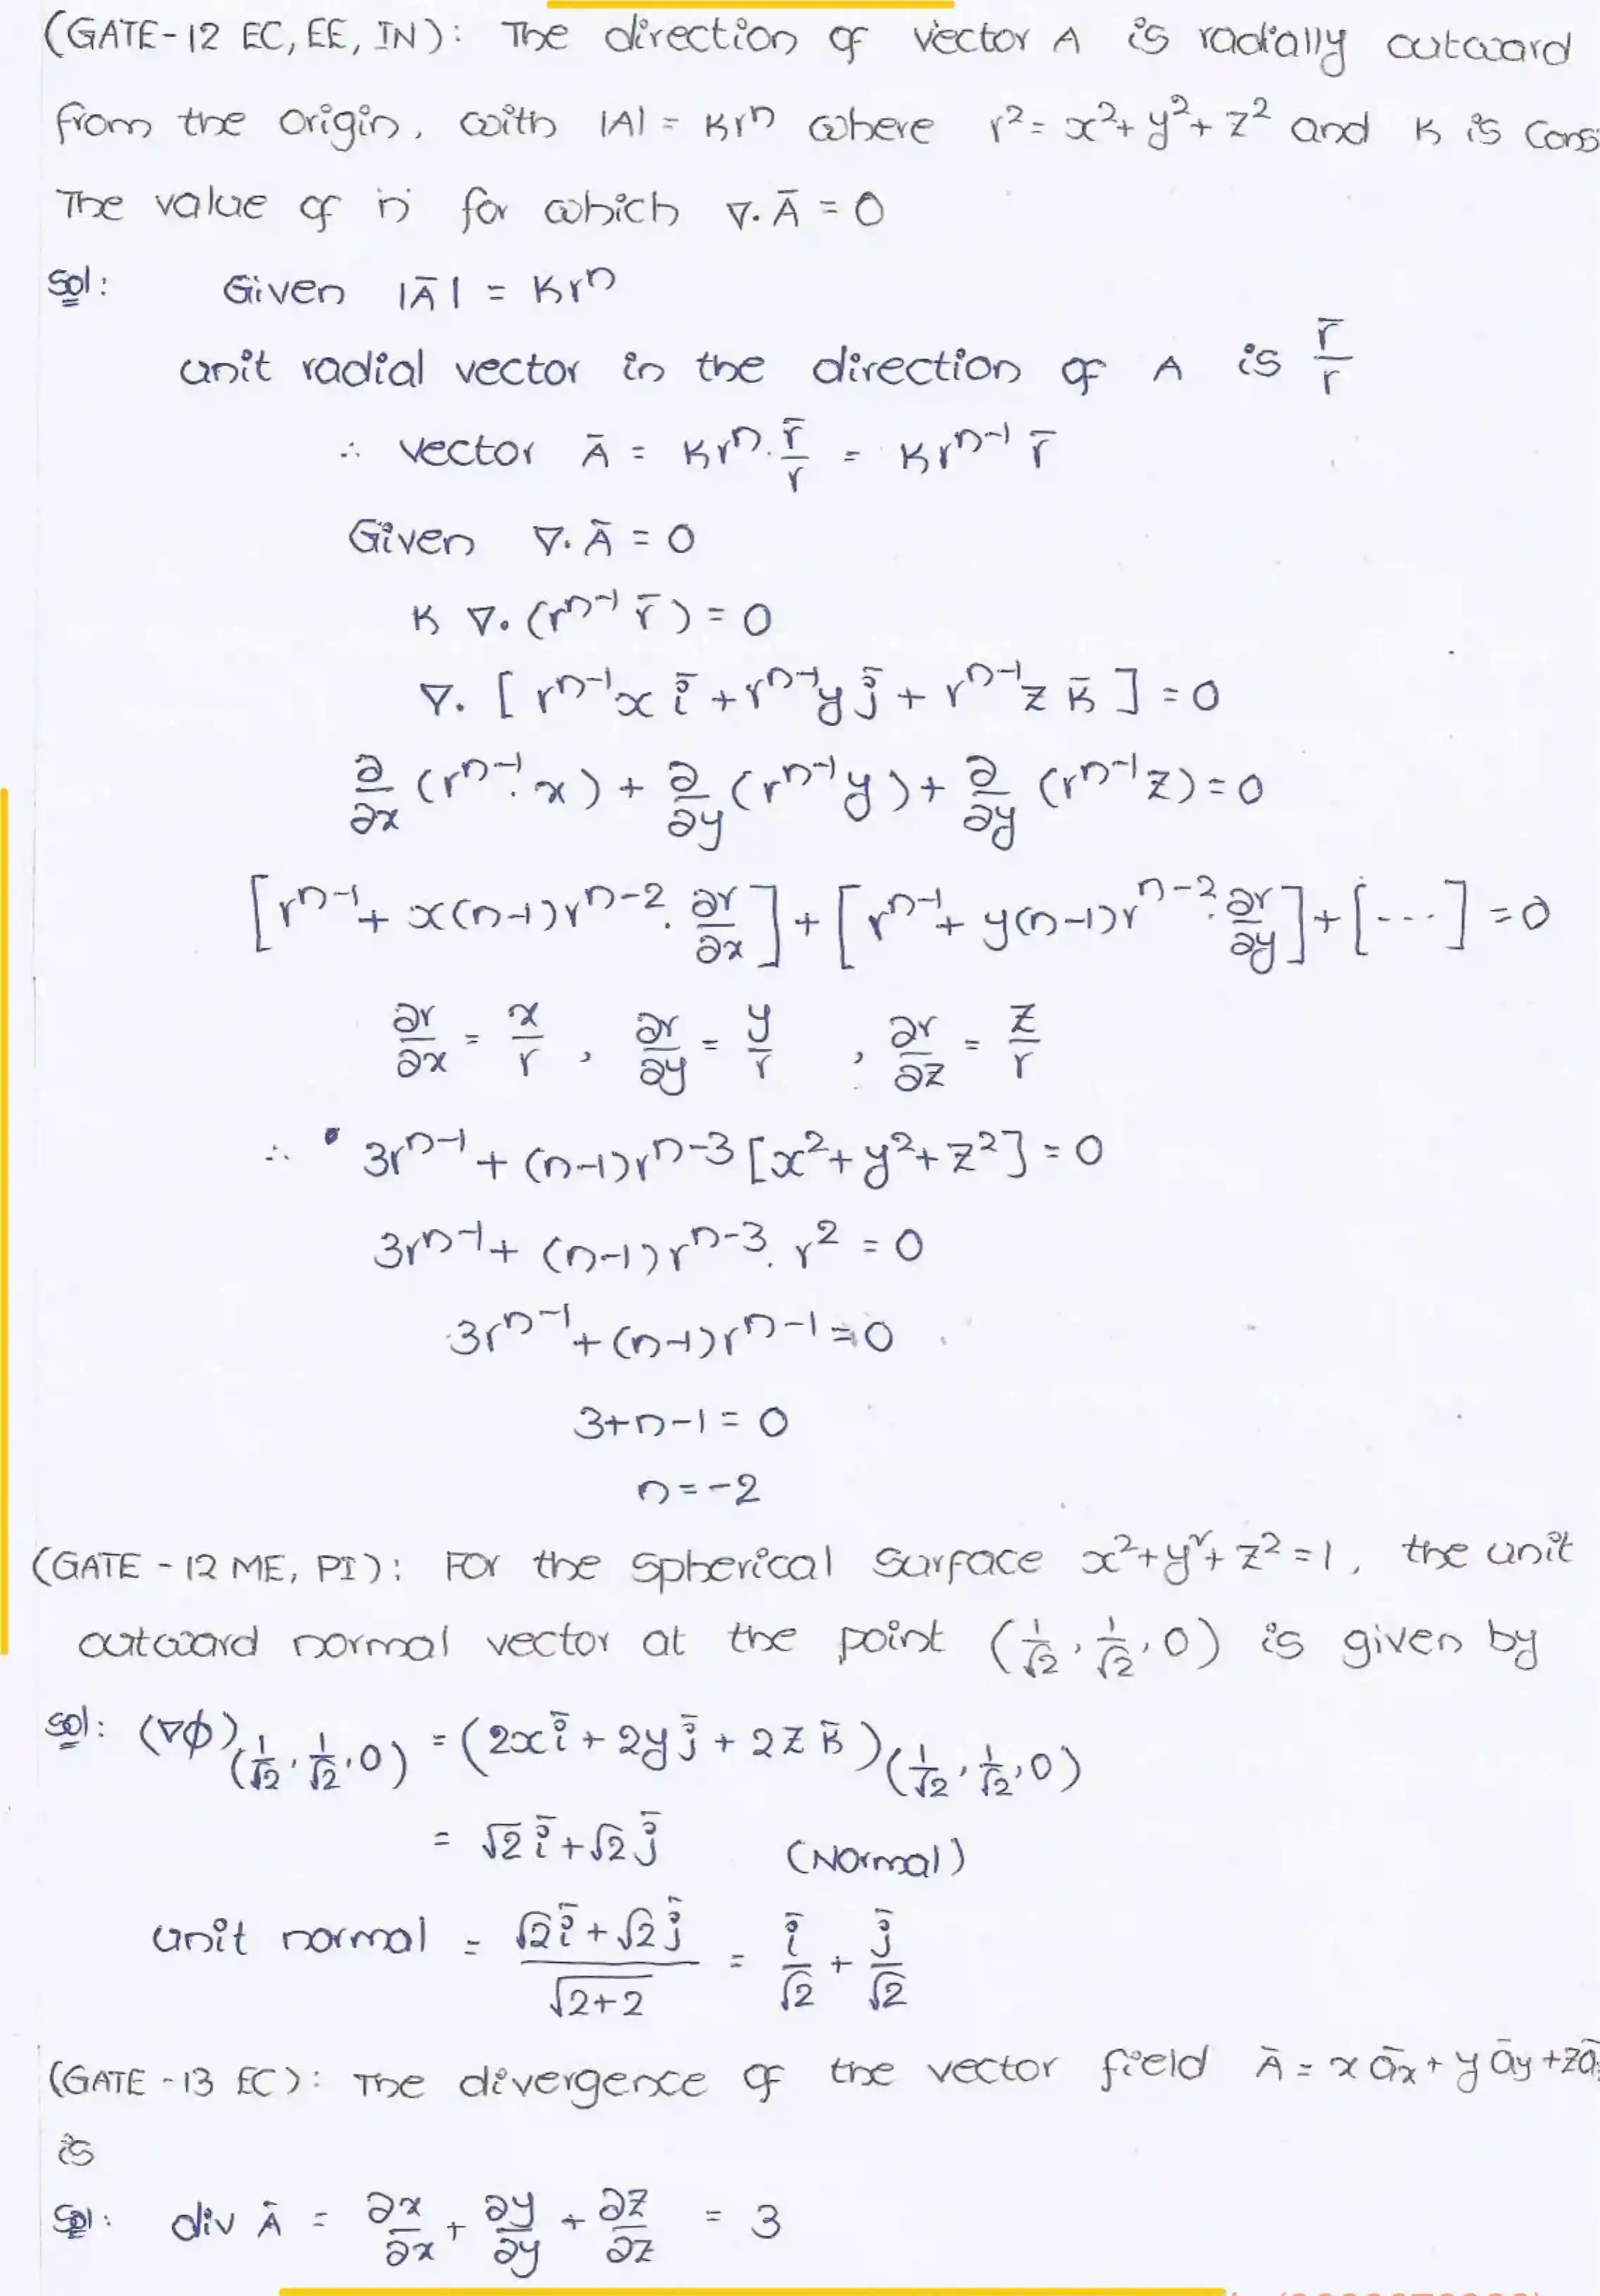 (GATE-12 EC, EE, IN): The direction of vector A is radially outward
from the origin, with |A| = Krⁿ where r² = x² + y² + z² and K is Cons
The value of 'n' for which ∇. Ā = 0
Sol: Given |Ā| = Krⁿ
unit radial vector in the direction of A is r̄/r
∴ vector Ā = Krⁿ. r̄/r = Krⁿ⁻¹ r̄
Given ∇. Ā = 0
K ∇. (rⁿ⁻¹ r̄) = 0
∇. [rⁿ⁻¹x ī + rⁿ⁻¹y j̄ + rⁿ⁻¹z k̄] = 0
∂/∂x (rⁿ⁻¹. x) + ∂/∂y (rⁿ⁻¹y) + ∂/∂y (rⁿ⁻¹z) = 0
[rⁿ⁻¹ + x(n-1)rⁿ⁻². ∂r/∂x] + [rⁿ⁻¹ + y(n-1)rⁿ⁻². ∂r/∂y] + [---] = 0
∂r/∂x = x/r , ∂r/∂y = y/r , ∂r/∂z = z/r
∴ 3rⁿ⁻¹ + (n-1)rⁿ⁻³ [x² + y² + z²] = 0
3rⁿ⁻¹ + (n-1)rⁿ⁻³. r² = 0
3rⁿ⁻¹ + (n-1)rⁿ⁻¹ = 0
3+n-1 = 0
n = -2
(GATE - 12 ME, PI): For the spherical surface x² + y² + z² = 1, the unit
outward normal vector at the point (1/√2, 1/√2, 0) is given by
Sol: (∇ϕ)(1/√2, 1/√2, 0) = (2xī + 2yj̄ + 2z k̄)(1/√2, 1/√2, 0)
= √2 ī + √2 j̄ (Normal)
unit normal = (√2 ī + √2 j̄)/√(2+2) = ī/√2 + j̄/√2
(GATE - 13 EC): The divergence of the vector field Ā = x āx + y āy + zā
is
Sol: div Ā = ∂x/∂x + ∂y/∂y + ∂z/∂z = 3